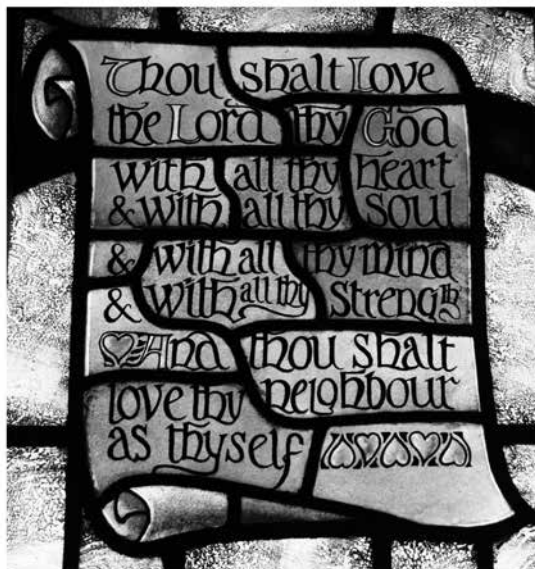 Thou shalt Love
the Lord thy God
with all thy heart
& with all thy soul
& with all thy mind
& with all thy strength
And thou shalt
love thy neighbour
as thyself